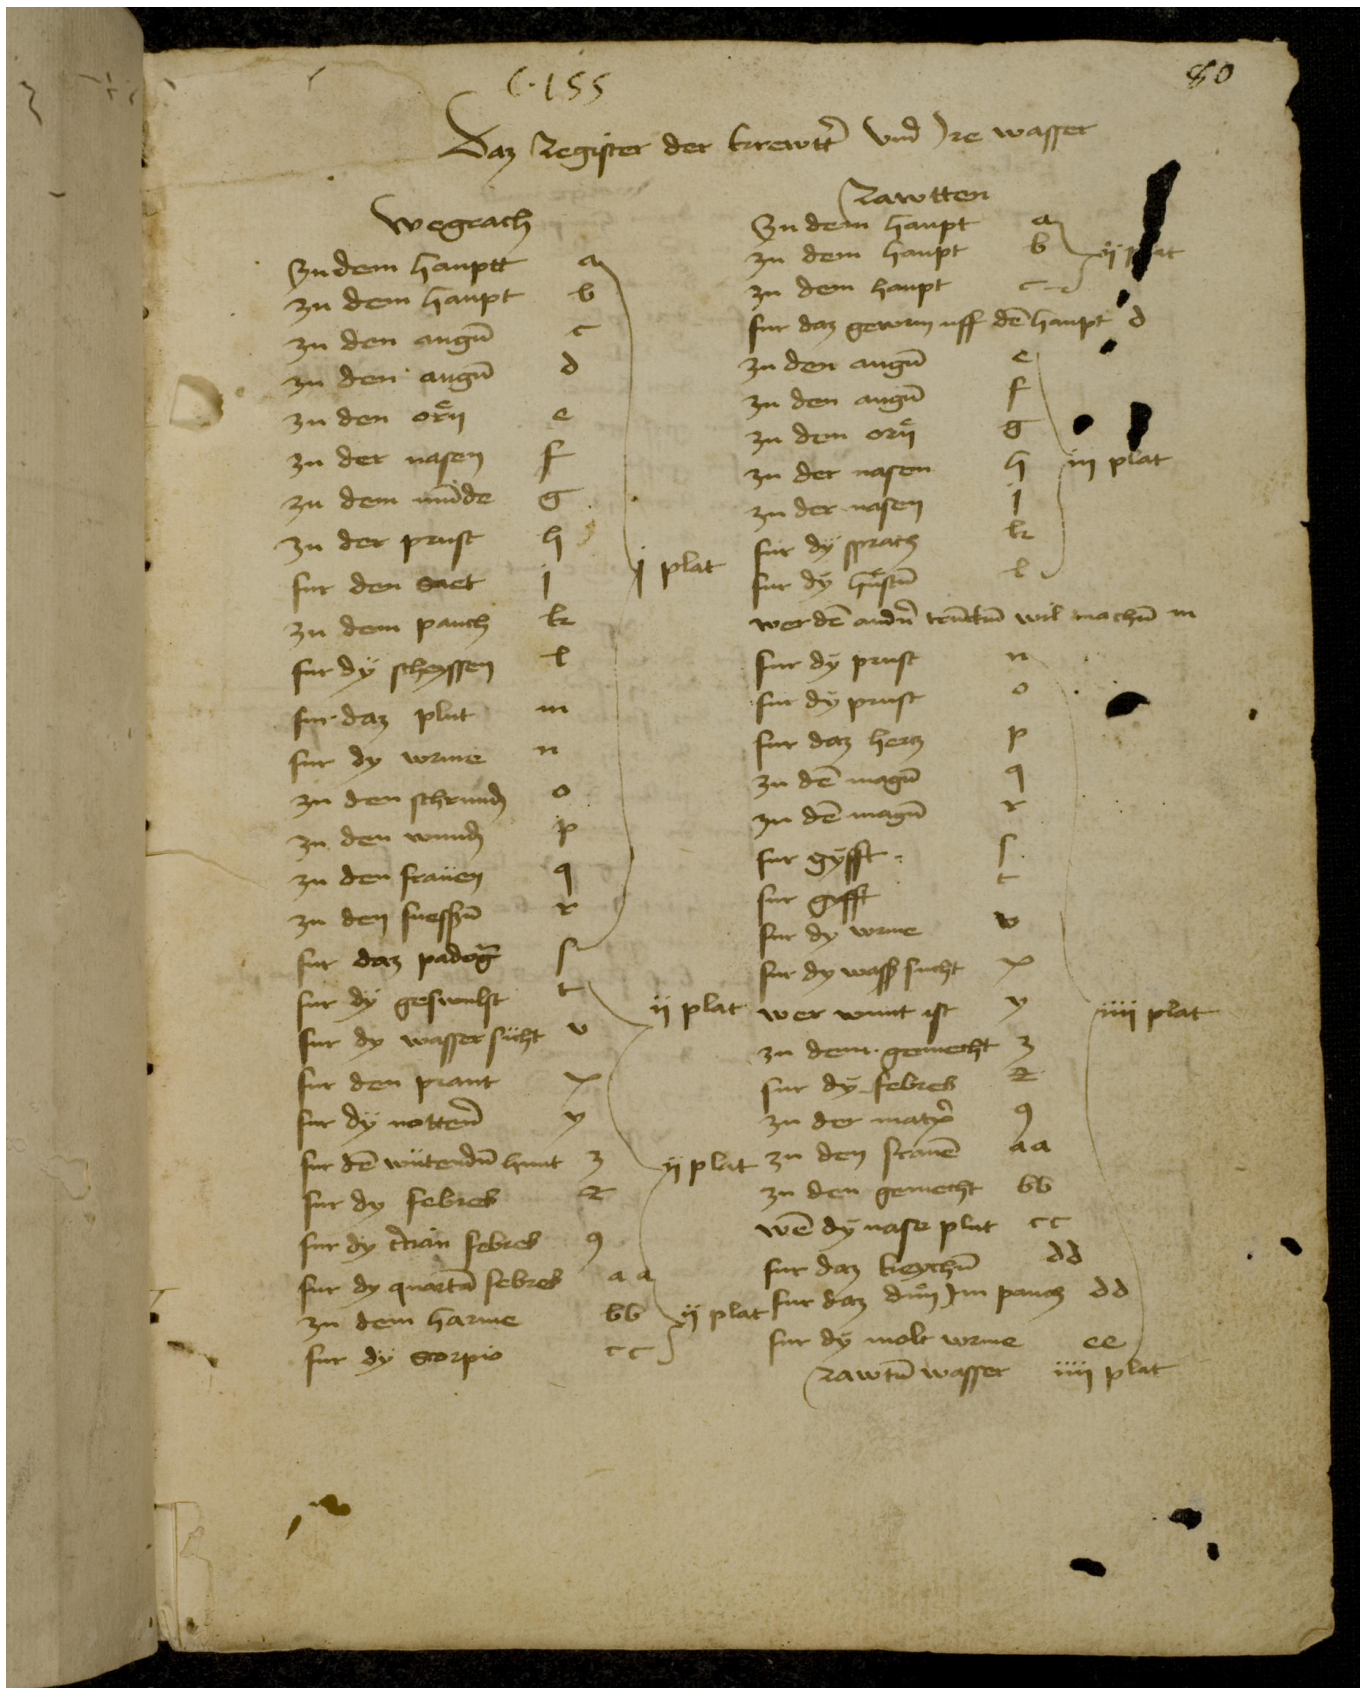 C. 155
80
Daz Register der krewtt̄ vnd Jre wasser
Wegrach
Zu dem hauptt a
zu dem haupt b
zu den augū c
zu den augū d
zu den orën e
zu der nasen f
zu dem mūde g
zu der prust h
fur den saet j
zu dem pauch k
fur dÿ scheyssen l
fur daz plut m
fur dy wrme n
zu den schrund̄ o
zu den wund̄ p
zu den frauen q
zu den fuessū r
fur daz padoḡ ſ
j plat
fur dÿ geswulst t
fur dy wassersucht v
ij plat
fur den prant x
fur dÿ notteñ y
fur dē wütendū hunt z
fur dy febres
ij plat
fur dy t̄cian febres 9
fur dy quartā febres aa
zu dem harme bb
fur dÿ scorpio cc
ij plat
Rawtten
Zu dem haupt a
zu dem haupt b
zu dem haupt c
ij plat
fur daz gewrm uff dē haupt d
zu den augū e
zu den augū f
zu den orn̄ g
zu der nasen h
zu der nasen j
fur dÿ sprach k
fur dÿ hustū l
iij plat
wer dē andn̄ trūckū wil machū m
fur dÿ prust n
fur dÿ prust o
fur daz hercz p
zu dē magū q
zu dē magū r
fur gÿfft ſ
fur gifft t
fur dy wrme v
fur dy wass̄sucht x
wer wunt ist y
zu dem gemecht z
fur dÿ febres
zu der matx̄ 9
zu den frauē aa
zu den gemecht bb
wē dÿ nase plut cc
fur daz keychū dd
fur daz Jm pauch dd
fur dÿ molt wrme ee
iiij plat
Rawtū wasser iiij plat